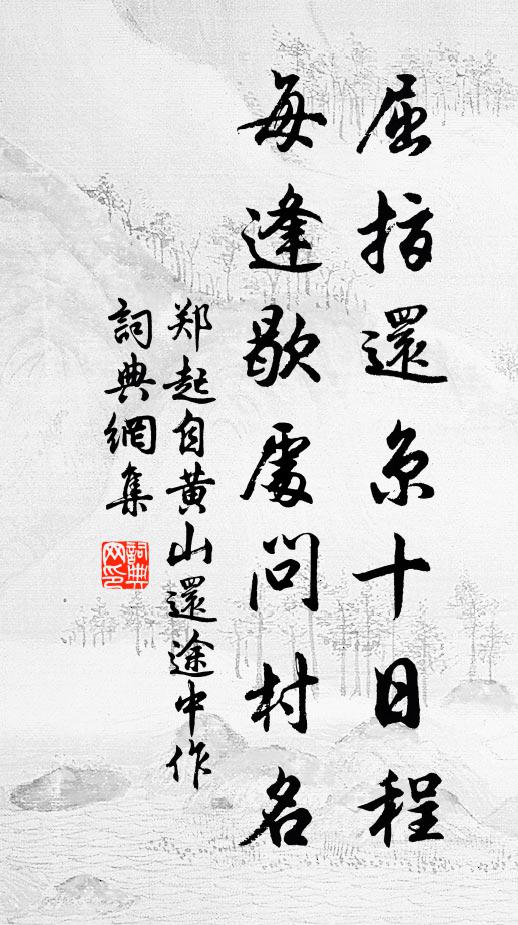 屈指還京十日程
每逢歇處問村名
郑起自黄山還途中作
詞典網集
詞典网印